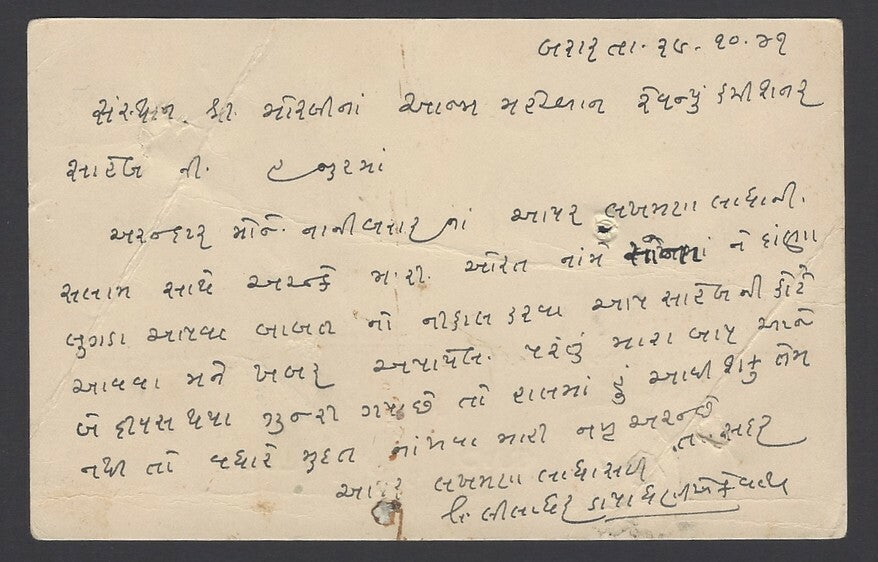 બરાર તા. ૨૬. ૧૦. ૪૧
સંસ્થાન શ્રી મોરબીનાં આઝમ મહેરબાન રેવન્યું કમીશનર
સાહેબ ની. હજુરમાં
અરજદાર મોજે. નાનીબરાર નાં આયર લખમણ લાધાની.
સલામ સાથે અરજકે મારી ઓરત નાંમે ને દાંણા
લુગડા આપવા બાબત નો નીકાલ કરવા આપ સાહેબ ની કોર્ટે
આવવા મને ખબર અપાયેલ. પરંતું મારા બાપ આજે
બે દીવસ થયા ગુજરી ગયા છે તો હાલમાં હું આવી શકું તેમ
નથી તો વધારે મુદત નાંખવા મારી નમ્ર અરજ છે
આયર લખમણ લાધા સહી સદર
લી. લીલાધર